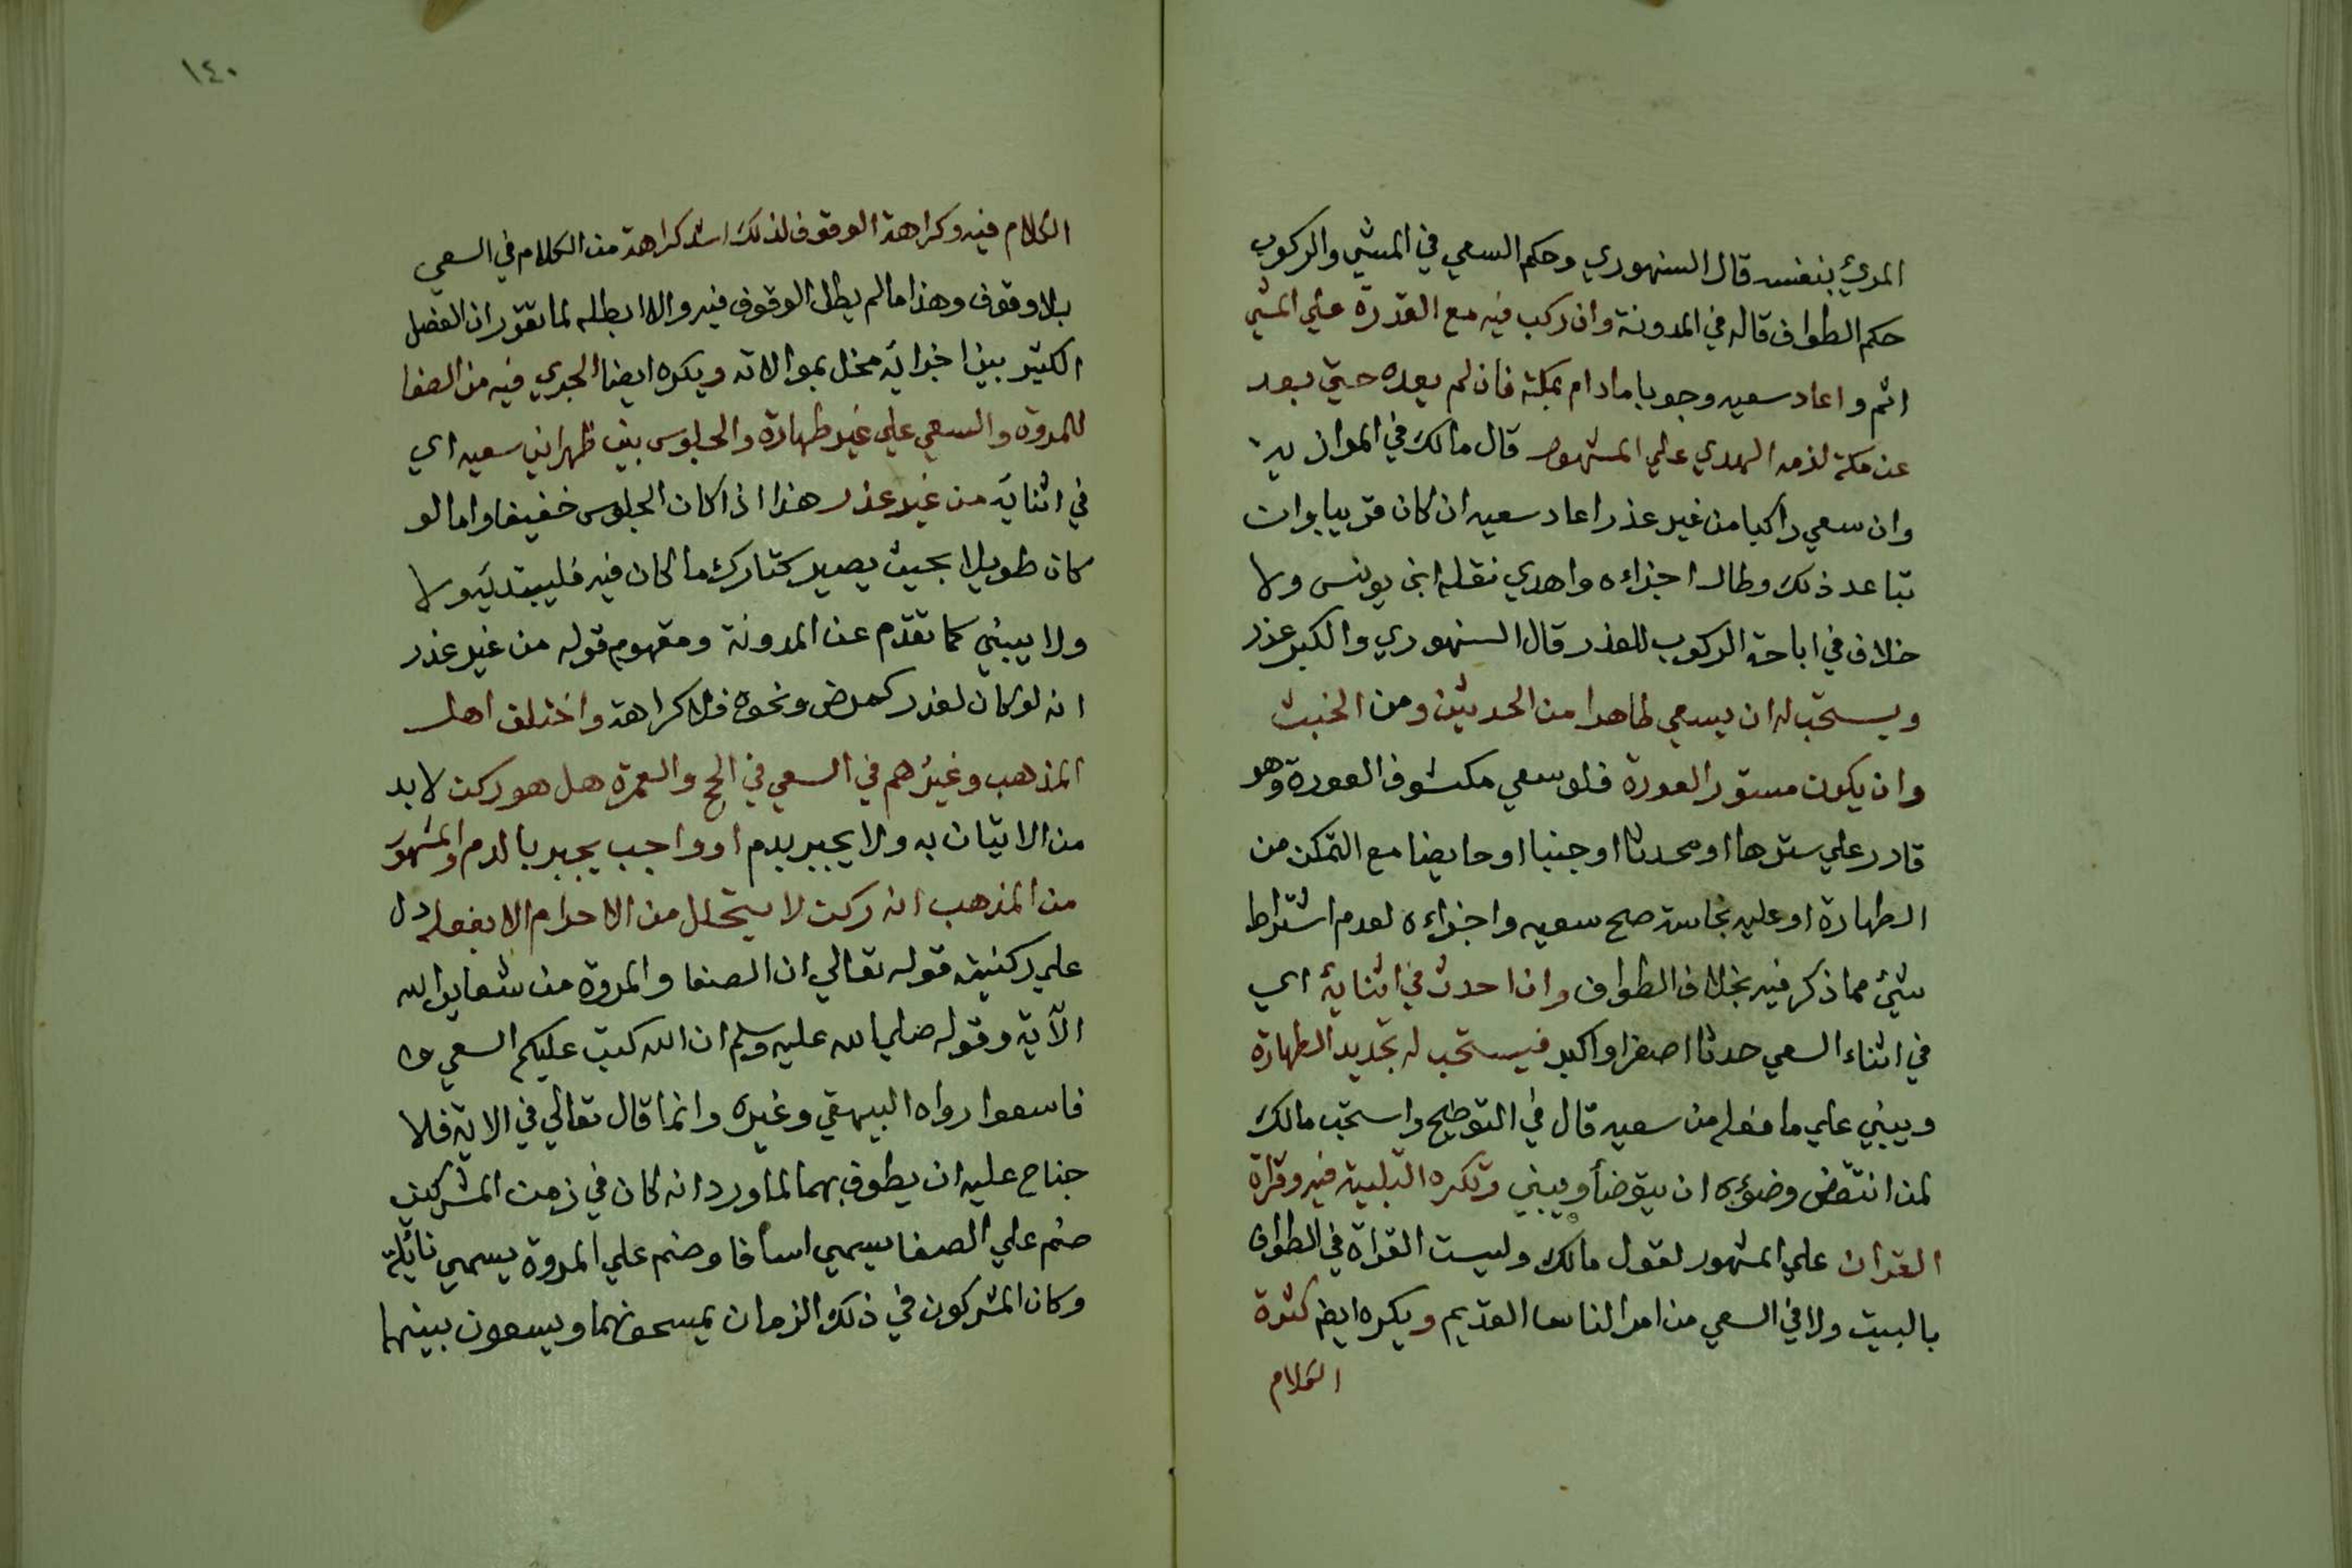 المرئ بنفسه قال السنهوري وحكم السعي في المشي والركوب
حكم الطواف قاله في المدونة وان ركب فيه مع القدرة علي المشي
اثم واعاد سعيه وجوبا مادام بمكة فان لم يعده حتي بعد
عن مكة لزمه الهدي علي المشهور قال مالك في الموازية
وان سعي راكبا من غير عذر اعاد سعيه ان كان قريبا وان
تباعد ذلك وطال اجزاءه واهدي نقله ابن يونس ولا
خلاف في اباحة الركوب للعذر قال السنهوري والكبر عذر
ويستحب له ان يسعي طاهرا من الحدثين ومن الخبث
وان يكون مستور العورة فلو سعي مكشوف العورة وهو
قادر علي سترها او محدثا او جنبا او حايضا مع التمكن من
الطهارة او عليه نجاسة صح سعيه واجزاءه لعدم اشتراط
شئ مما ذكر فيه بخلاف الطواف وان احدث في اثنايه اي
في اثناء السعي حدثا اصغر او اكبر فيستحب له تجديد الطهارة
ويبني علي ما فعله من سعيه قال في التوضيح واستحب مالك
لمن انتقض وضوءه ان يتوضأ ويبني وتكره التلبية فيه وقراة
القران علي المشهور لقول مالك وليست القراة في الطواف
بالبيت ولا في السعي من امر الناس القديم ويكره ايض كثرة
الكلام
١٤٠
الكلام فيه وكراهة الوقوف لذلك اشد كراهة من الكلام في السعي
بلا وقوف وهذا ما لم يطل الوقوف فيه والا ابطله لما تقرر ان الفصل
الكثير بين اجزايه مخل بموالاته ويكره ايضا الجري فيه من الصفا
للمروة والسعي علي غير طهارة والجلوس بين ظهراني سعيه اي
في اثنايه من غير عذر هذا اذا كان الجلوس خفيفا واما لو
كان طويلا بحيث يصير كتارك ما كان فيه فليبتدئ ولا
ولا يبني كما تقدم عن المدونة ومفهوم قوله من غير عذر
انه لو كان لعذر كمرض ونحوه فلا كراهة واختلف اهل
المذهب وغيرهم في السعي في الحج والعمرة هل هو ركن لا بد
من الاتيان به ولا يجبر بدم او واجب يجبر بالدم والمشهور
من المذهب انه ركن لا يتحلل من الاحرام الا بفعله دل
علي ركنيته قوله تعالي ان الصفا والمروة من شعاير الله
الآية وقوله صلي الله عليه وسلم ان الله كتب عليكم السعي
فاسعوا رواه البيهقي وغيره وانما قال تعالي في الاية فلا
جناح عليه ان يطوف بهما لما ورد انه كان في زمن المشركين
صنم علي الصفا يسمي اسافا وصنم علي المروة يسمي نائلة
وكان المشركون في ذلك الزمان يمسحونهما ويسعون بينهما